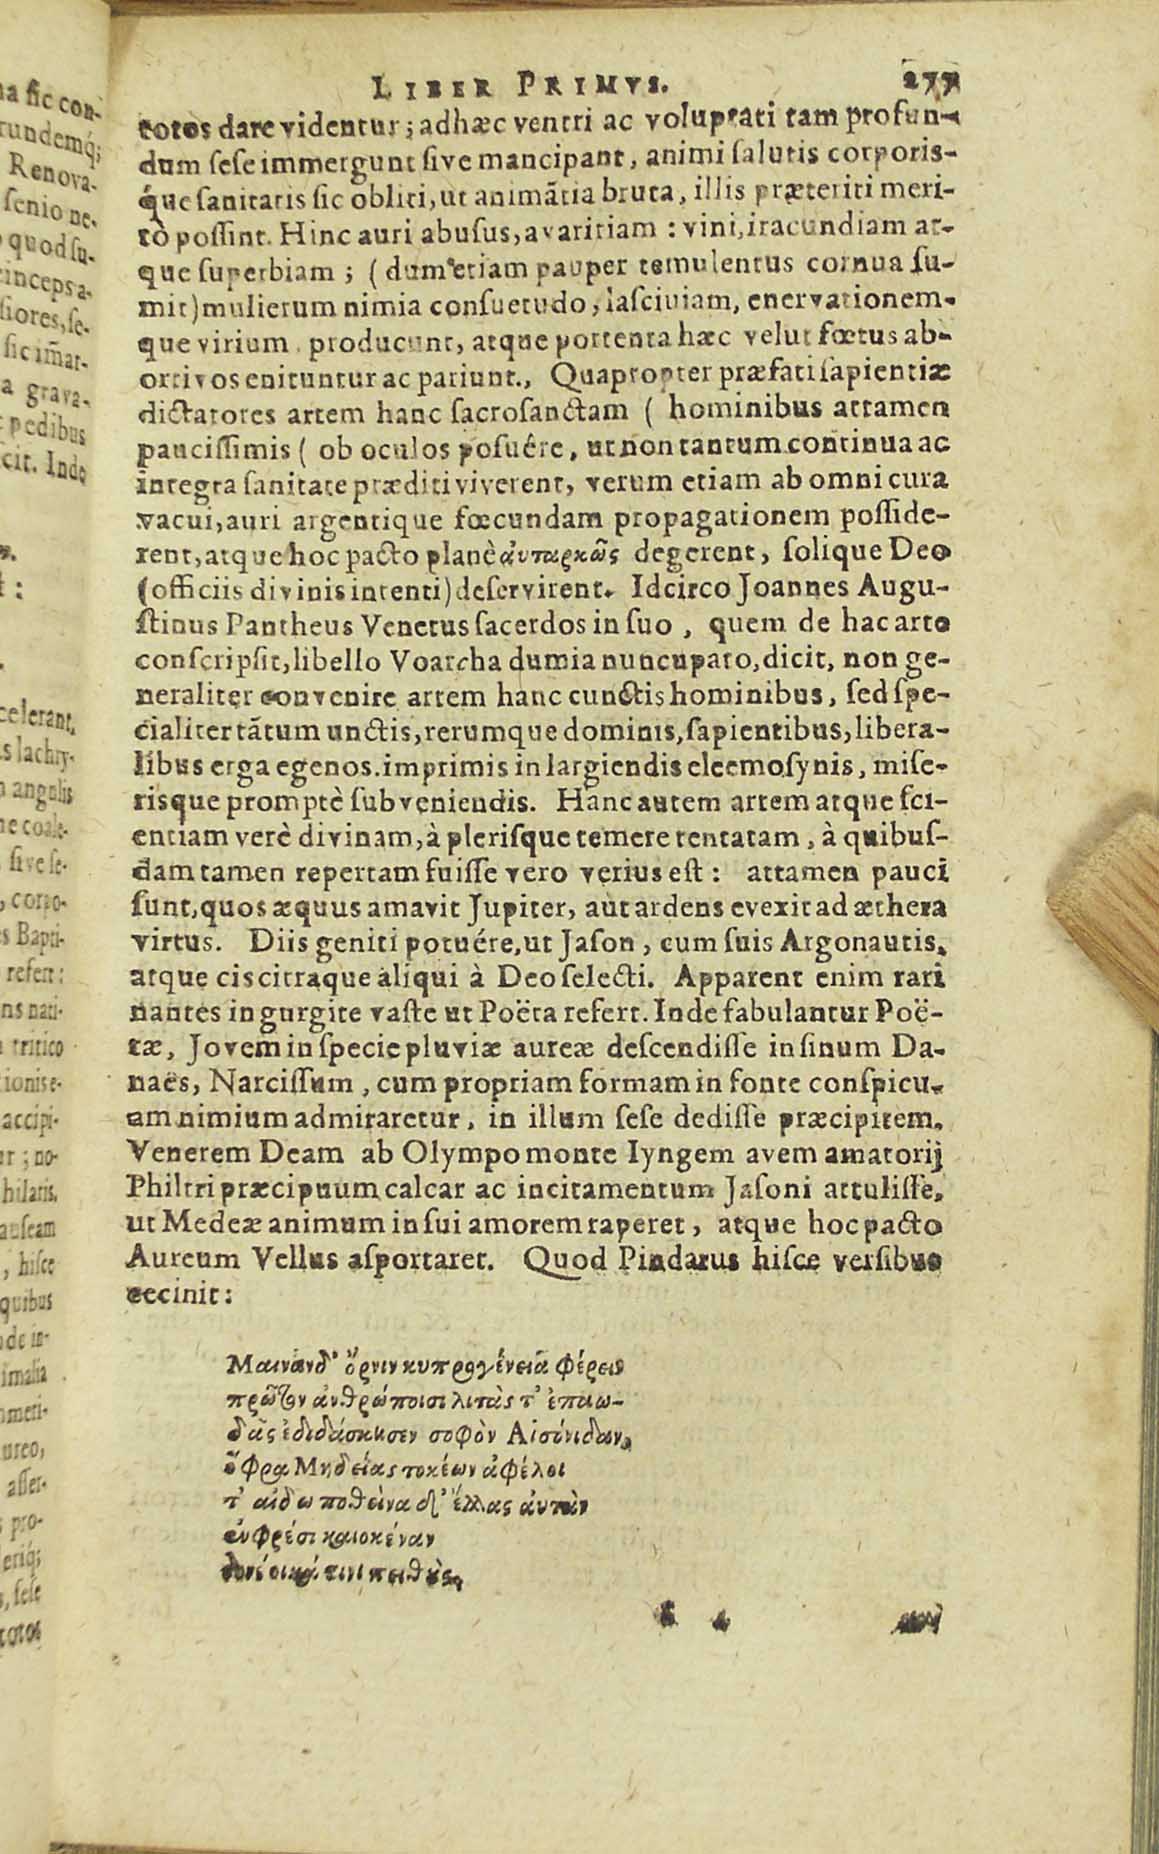 LIBER PRIMVS. 277
totos dare videntur; adhæc ventri ac voluptati tam profun-
dum sese immergunt sive mancipant, animi salutis corporis-
q́ue sanitatis sic obliti, ut animãtia bruta, illis præteriti meri-
to possint. Hinc auri abusus, avaritiam: vini, iracundiam at-
que superbiam; (dum etiam pauper temulentus cornua su-
mit) mulierum nimia consuetudo, lasciviam, enervationem-
que virium producunt, atque portenta hæc velut fœtus ab-
ortivos enituntur ac pariunt., Quapropter præfati sapientiæ
dictatores artem hanc sacrosanctam ( hominibus attamen
paucissimis ( ob oculos posuére, ut non tantum continua ac
integra sanitate præditi viverent, verum etiam ab omni cura
vacui, auri argentique fœcundam propagationem posside-
rent, atque hoc pacto planè ἀυταρκῶς degerent, solique Deo
(officiis divinis intenti) deservirent. Idcirco Joannes Augu-
stinus Pantheus Venetus sacerdos in suo, quem de hac arte
conscripsit, libello Voarcha dumia nuncupato, dicit, non ge-
neraliter convenire artem hanc cunctis hominibus, sed spe-
cialiter tãtum unctis, rerumque dominis, sapientibus, libera-
libus erga egenos. imprimis in largiendis eleemosynis, mise-
risque promptè subveniendis. Hanc autem artem atque sci-
entiam verè divinam, à plerisque temere tentatam, à quibus-
dam tamen repertam fuisse vero verius est: attamen pauci
sunt, quos æquus amavit Jupiter, aut ardens evexit ad æthera
virtus. Diis geniti potuére, ut Jason, cum suis Argonautis,
atque cis citraque aliqui à Deo selecti. Apparent enim rari
nantes in gurgite vaste ut Poëta refert. Inde fabulantur Poë-
tæ, Jovem in specie pluviæ aureæ descendisse in sinum Da-
naës, Narcissum, cum propriam formam in fonte conspicu-
am nimium admiraretur, in illum sese dedisse præcipitem.
Venerem Deam ab Olympo monte Iyngem avem amatorij
Philtri præcipuum calcar ac incitamentum Jasoni attulisse,
ut Medeæ animum in sui amorem raperet, atque hoc pacto
Aureum Vellus asportaret. Quod Pindarus hisce versibus
cecinit:
Μαινάνδ' ὄρνιν κυπρογένεια φέρειν
πρῶτον ἀνθρώποισι λιτὰς τ' ἐπαω-
δὰς ἐδιδάσκησεν σοφὸν Αἰσόνιδαν,
ὄφρα Μηδείας τοκέων ἀφέλοι
τ' αἰδω ποθεινα δ' Ἑλλας ἀυτὰν
ἐνφρέσι καιοκέναν